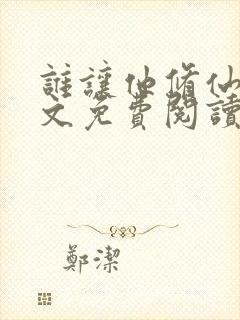 誰讓他修仙
文免費閱讀
鄭潔